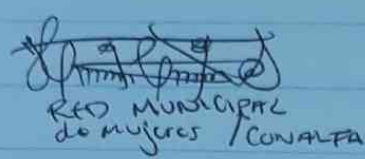 RED MUNICIPAL
de Mujeres / CONALFA